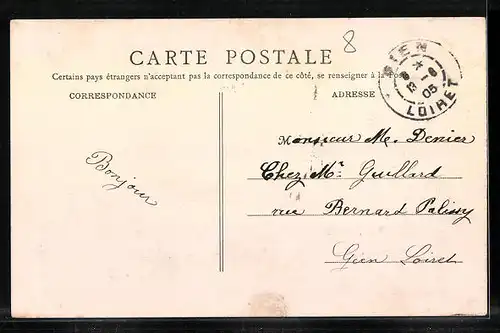 8
CARTE POSTALE
Certains pays étrangers n'acceptant pas la correspondance de ce côté, se renseigner à la Poste
CORRESPONDANCE
ADRESSE
GIEN
LOIRET
05
Monsieur M. Denier
Chez Mr Guillard
rue Bernard Palissy
Gien Loiret
Bonjour